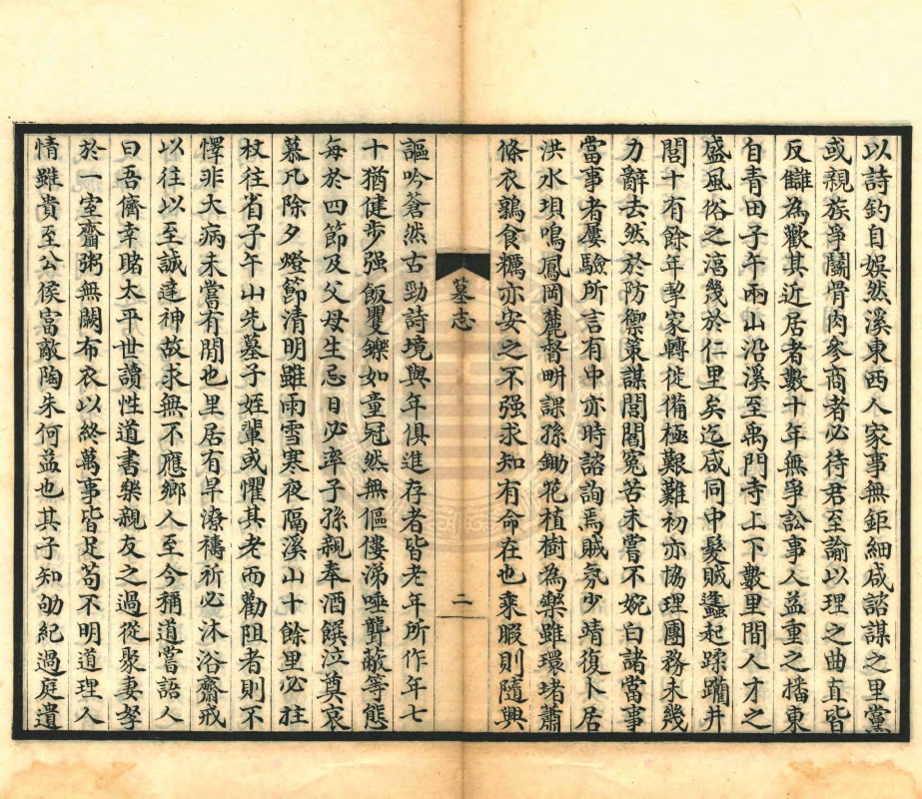 以詩釣自娛然溪東西人家事無鉅細咸諮謀之里黨
或親族爭鬭骨肉參商者必待君至諭以理之曲直皆
反讎為歡其近居者數十年無爭訟事人益重之播東
自青田子午兩山沿溪至禹門寺上下數里間人才之
盛風俗之淳幾於仁里矣迄咸同中髮賊蠭起蹂躪井
閭十有餘年挈家轉徙備極艱難初亦協理團務未幾
力辭去然於防禦策謀閭閻冤苦未嘗不婉白諸當事
當事者屢驗所言有中亦時諮詢焉賊氛少靖復卜居
洪水垻鳴鳳岡麓督畊課孫鋤花植樹為樂雖環堵蕭
條衣鶉食糲亦安之不强求知有命在也乘暇則隨興
墓志
二
謳吟蒼然古勁詩境與年俱進存者皆老年所作年七
十猶健步强飯矍鑠如童冠然無傴僂涕唾聾蔽等態
每於四節及父母生忌日必率子孫親奉酒饌泣奠哀
慕凡除夕燈節清明雖雨雪寒夜隔溪山十餘里必拄
杖往省子午山先墓子姪輩或懼其老而勸阻者則不
懌非大病未嘗有閒也里居有旱潦禱祈必沐浴齋戒
以往以至誠達神故求無不應鄉人至今稱道嘗語人
曰吾儕幸睹太平世讀性道書樂親友之過從聚妻孥
於一室齏粥無闕布衣以終萬事皆足苟不明道理人
情雖貴至公侯富敵陶朱何益也其子知劬紀過庭遺